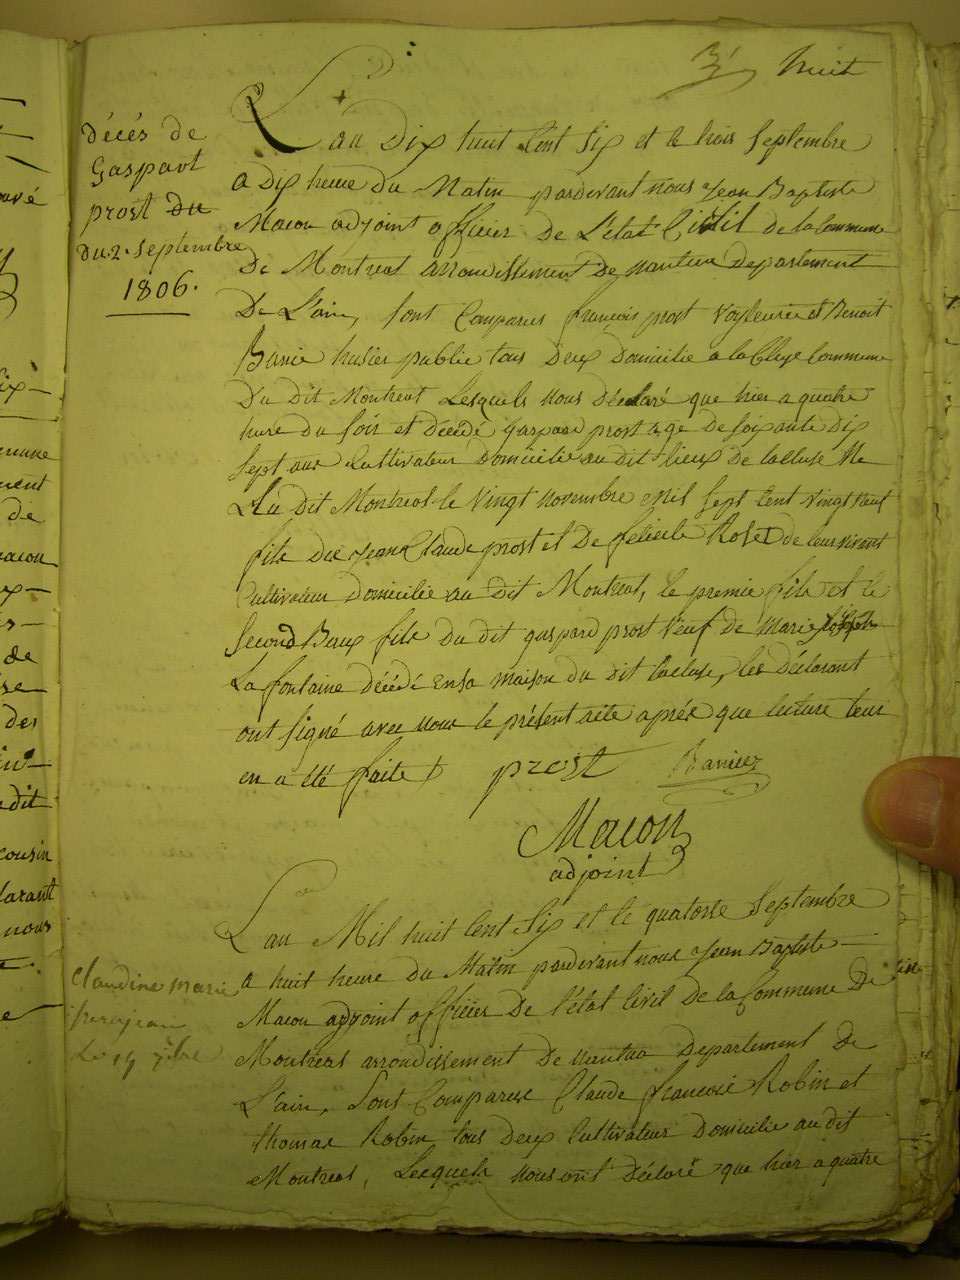 huit
décés de
Gaspart
prost du
du 2. septembre
1806.
L'an Dix huit Cent Six et le trois Septembre
a Dix heure du Matin pardevant nous Jean Baptiste
Macon adjoint officier De L'état Civil de la Commune
De Montreal arrondissement De nantua Departement
De L'ain, Sont Comparus françois prost et Benoit
Banie husier public tous Deux Domicilié a la Cluse Commune
Du Dit Montreal Lesquels nous Déclaré que hier a quatre
heure Du Soir et Décédé gaspard prost agé De Soixante Dix
Sept ans Cultivateur Domicilié au dit lieux De lacluse Né
Au dit Montreal le vingt novembre Mil Sept Cent vingt neuf
fils du Jean Claude prost et De felicité Roset de leur vivant
Cultivateur Domicilié au Dit Montreal, le premie fils et le
Second Beaux fils Du dit gaspard prost veuf de Marie
La fontaine décédé en sa maison du dit lacluse, les Déclarant
ont Signé avec nous le présent acte aprés que lecture leur
en a été faite prost Baniez
Macon
adjoint
L'an Mil huit Cent Six et le quatorse Septembre
a huit heure du Matin pardevant nous Jean Baptiste
Claudine marie
Macon adjoint officier De l'état Civil De la Commune De
perrojean
Le 14 7bre
Montreal arrondissement De nantua Departement De
L'ain, Sont Comparus Claude françois Robin et
thomas Robin tous Deux Cultivateur Domicilie au dit
Montreal, Lesquels nous ont Déclaré que hier a quatre